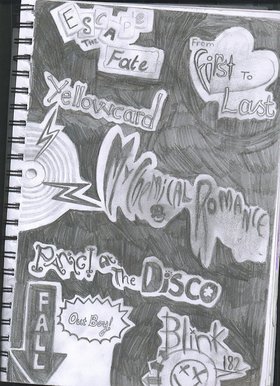 EscApe
THE
Fate
From
FiRST To
Last
Yellowcard
My CHemicAL ROMANCE
PANiC! at
The DISCO
FALL
Out Boy!
Blink
182